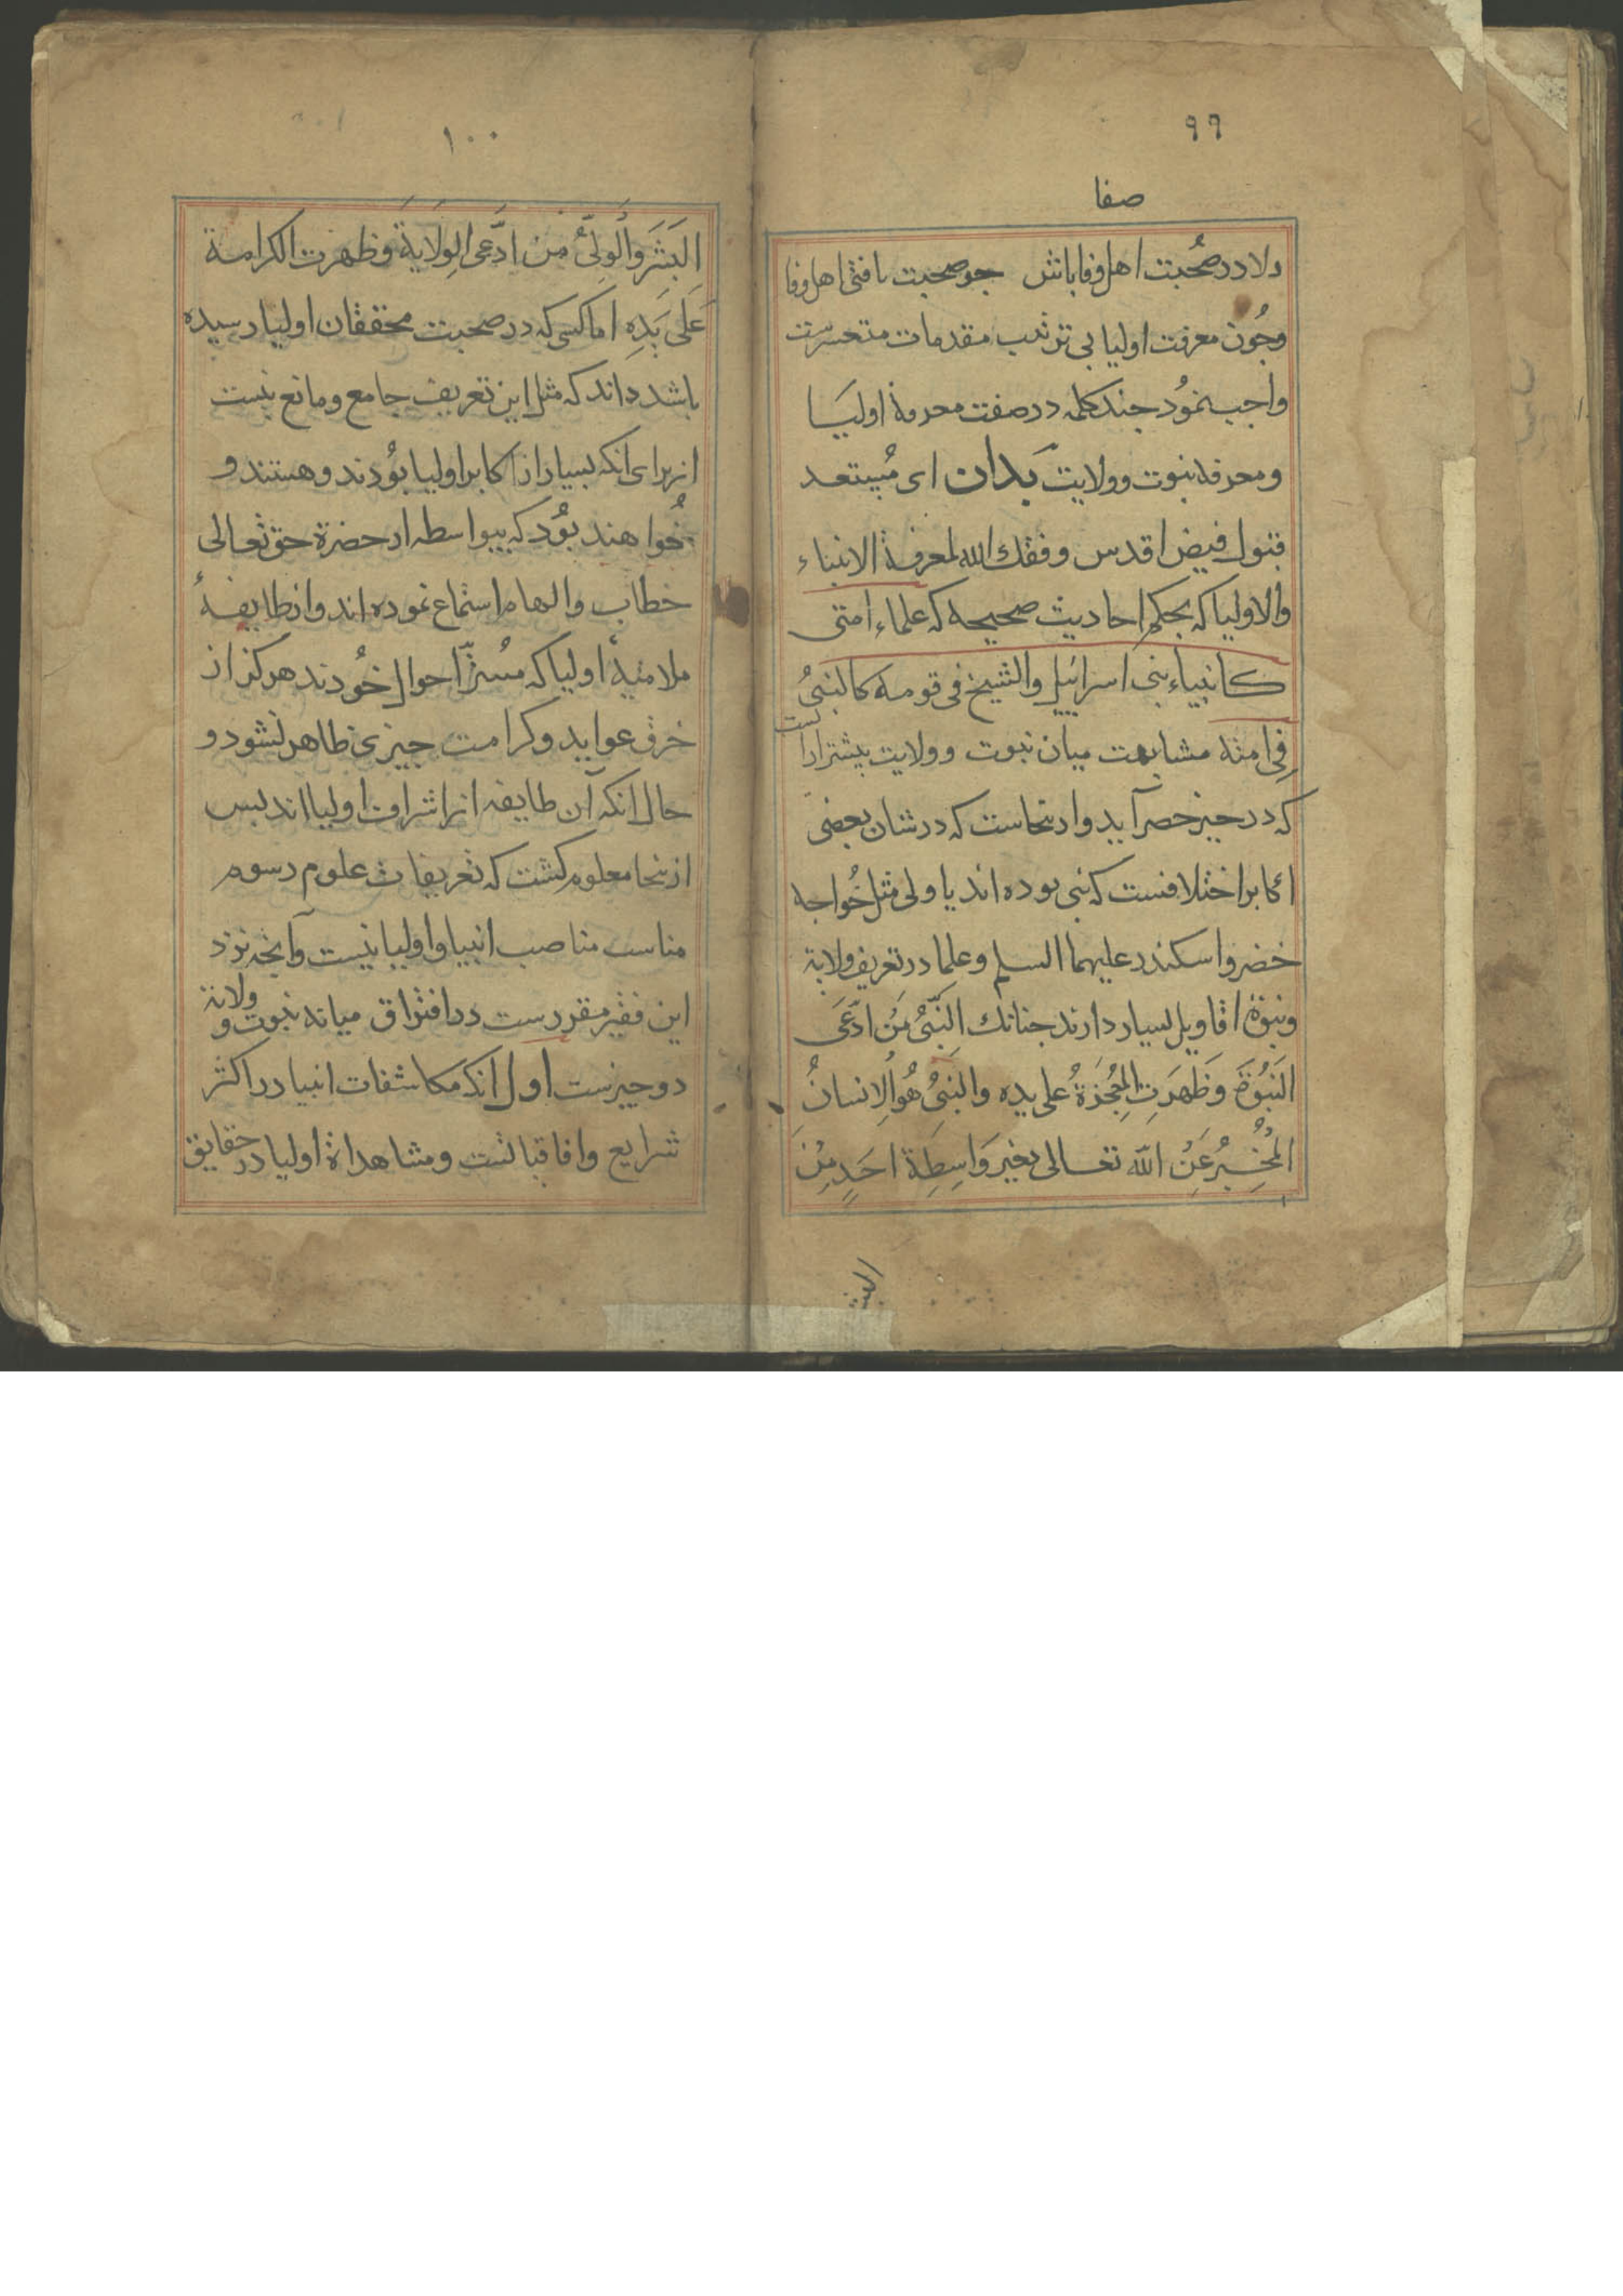 ۹۹
صفا
دلا در صُحبت اهل وفا باش جو صحبت یافتی اهل وفا
وجُون معرفت اولیا بی ترتیب مقدمات متعسرست
واجب نمُود جند کلمه در صفت معرفة اولیَا
ومعرفة نبوت وولایت بَدان ای مُستعد
قبول فیض اقدس وفقك الله لمعرفة الانبیاء
والاولیا که بحکم احادیث صحیحه که علماء امتی
کانبیاء بنی اسرائیل والشیخ فی قومه کالنبیُ
فِی امته مشابهت میان نبوت وولایت بیشتر ازانست
که در حیز حصر آید وازینجاست که در شان بعضی
اکابر اختلافست که نبی بوده اند یا ولی مثل خُواجه
خضر واسکندر علیهما السلم وعلما در تعریف ولایة
ونبوة اقاویل بسیار دارند جنانك اَلنَّبیُّ مَن ادَّعَی
النَبُوَّةَ وَظَهَرَتِ المُعجَزَةُ علی یده والنَبیُ هُوَ الاِنسانُ
المُخبِرُ عَنِ الله تعالی بغیر وَاسِطَةِ احَدٍ مِنَ
البش
۱۰۰
البَشَرِ وَالوَلیُّ مَن ادَّعی الوِلَایَةَ وَظهرت الکرامة
عَلی یَدِهِ اما کسی که در صحبت محققان اولیا رسیده
باشد داند که مثل این تعریف جامع ومانع نیست
از برای انکه بسیار از اکابر اولیا بوُدند وهستند و
خُواهند بوُد که بیواسطه از حضرة حق تعالی
خطاب والهام استماع نموده اند واز طایفهٔ
ملامتیهٔ اولیا که مسُترّ احوال خُودند هرکز از
خرق عواید وکرامت جیزی ظاهر نشود و
حال انکه آن طایفه از اشراف اولیا اند بس
ازینجا معلوم کشت که تعریفات علوم رسوم
مناسب مناصب انبیا واولیا نیست وآنجه نزد
این فقیر مقررست در افتراق میانه نبوت وولایة
دو جیزست اول انکه مکاشفات انبیا در اکثر
شرایع وافاقیاتست ومشاهداة اولیا در حقایق